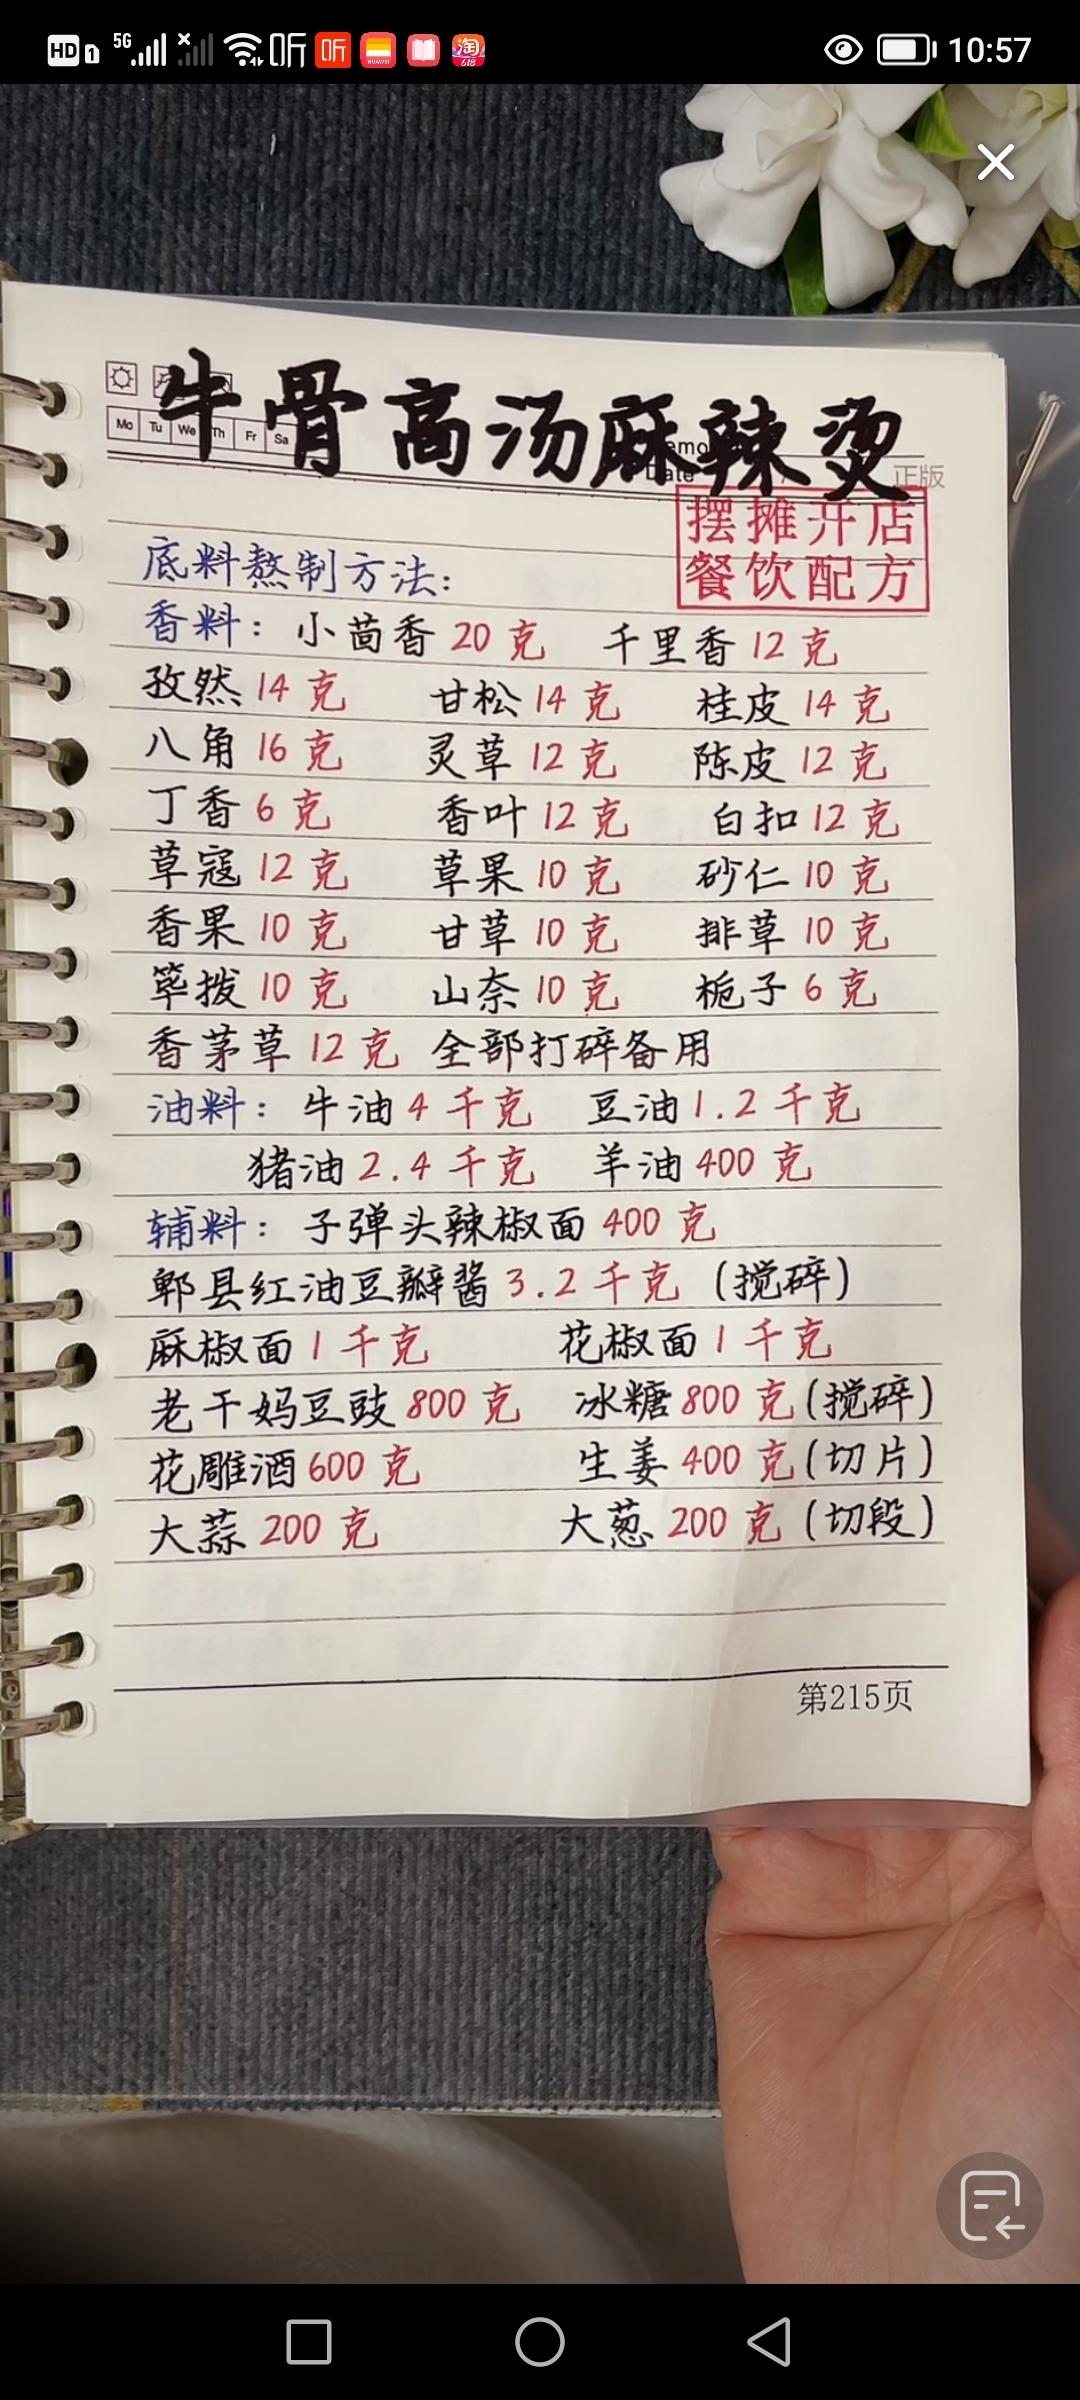 HD 1 5G 听 听 HUAWEI 淘 618 10:57
牛骨高汤麻辣烫
Mo Tu We Th Fr Sa
emo
Date
正版
摆摊开店
餐饮配方
底料熬制方法:
香料: 小茴香 20 克 千里香 12 克
孜然 14 克 甘松 14 克 桂皮 14 克
八角 16 克 灵草 12 克 陈皮 12 克
丁香 6 克 香叶 12 克 白扣 12 克
草寇 12 克 草果 10 克 砂仁 10 克
香果 10 克 甘草 10 克 排草 10 克
筚拨 10 克 山奈 10 克 栀子 6 克
香茅草 12 克 全部打碎备用
油料: 牛油 4 千克 豆油 1.2 千克
猪油 2.4 千克 羊油 400 克
辅料: 子弹头辣椒面 400 克
郫县红油豆瓣酱 3.2 千克 (搅碎)
麻椒面 1 千克 花椒面 1 千克
老干妈豆豉 800 克 冰糖 800 克 (搅碎)
花雕酒 600 克 生姜 400 克 (切片)
大蒜 200 克 大葱 200 克 (切段)
第215页